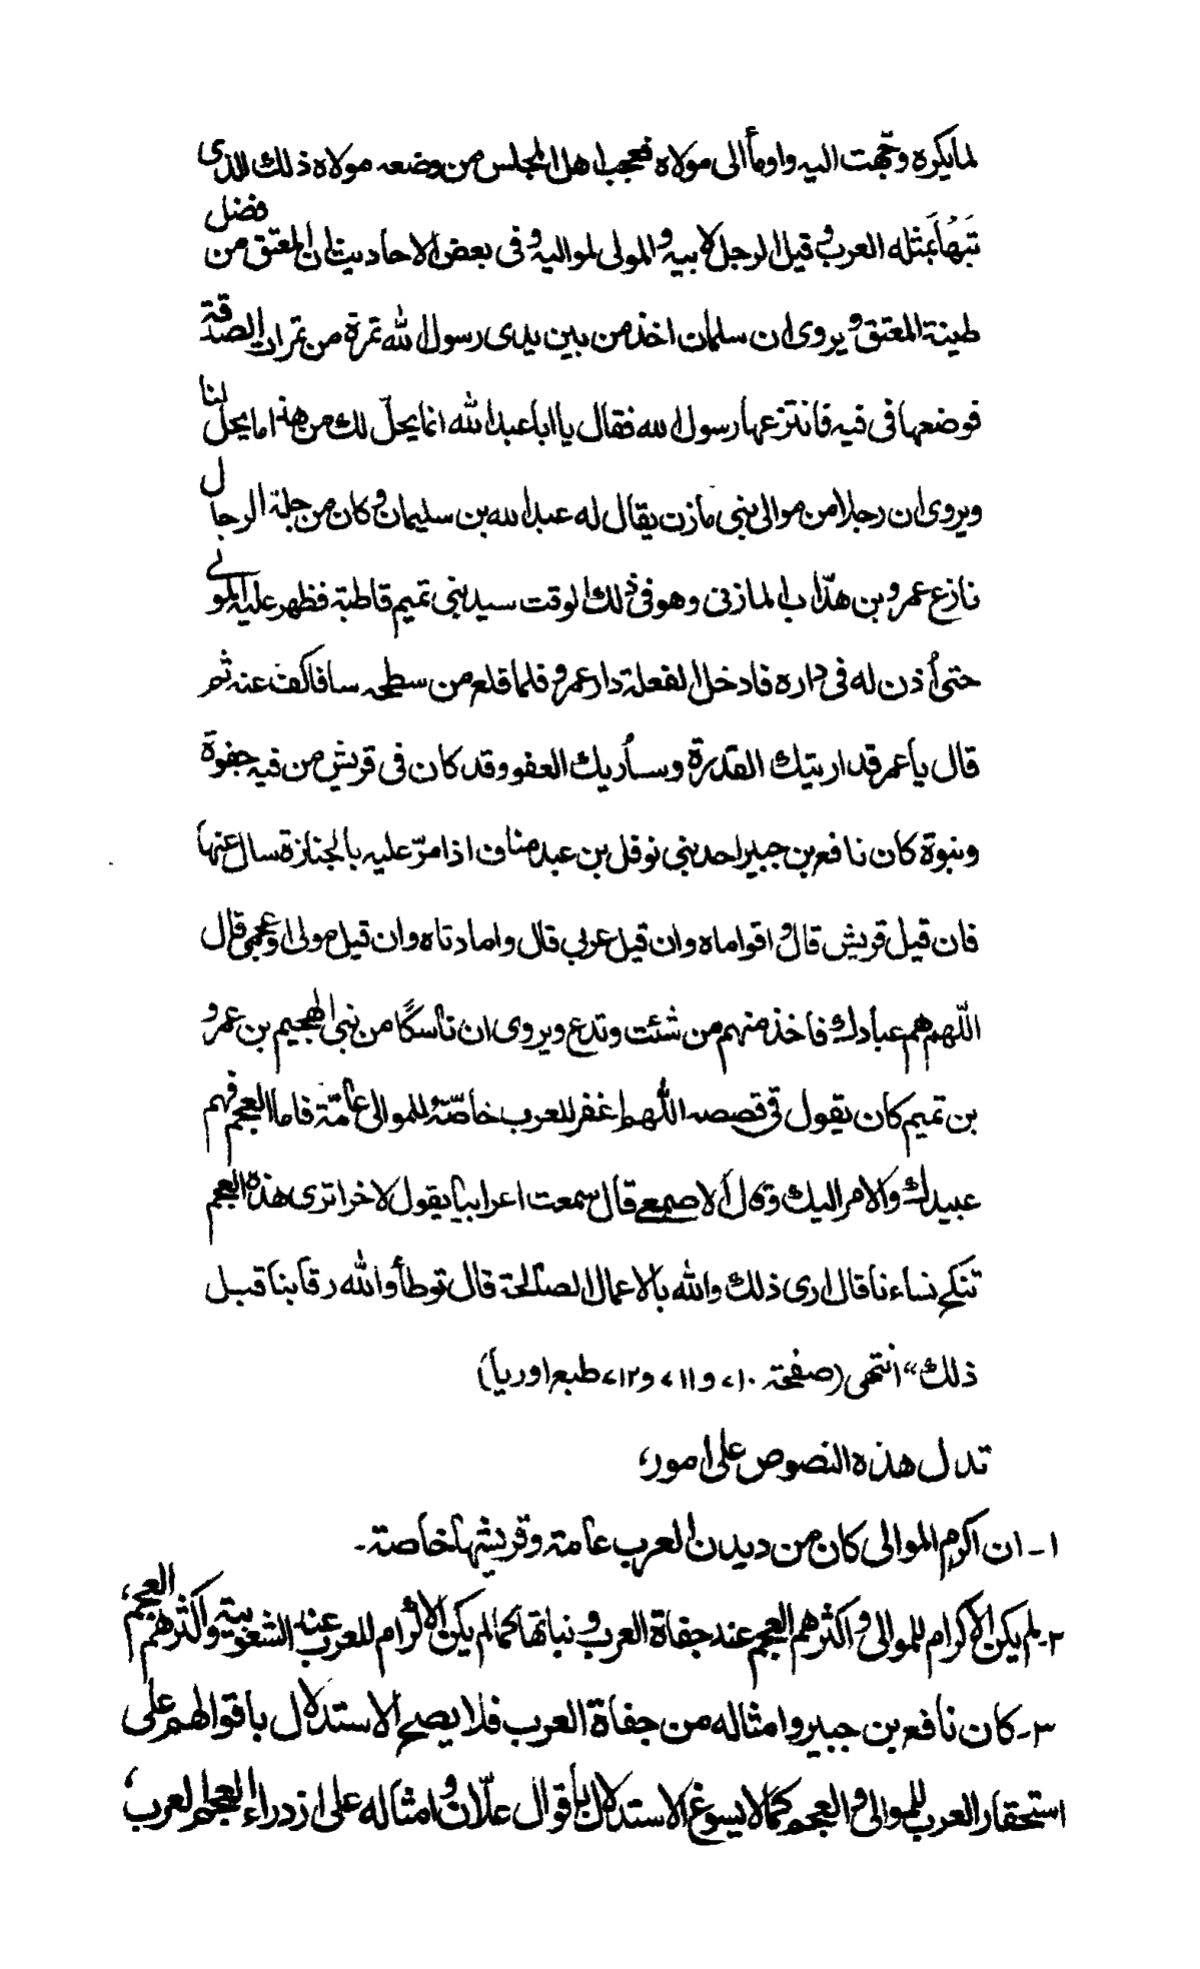 لما يكره وجّهت اليه واومأ الى مولاه فعجب اهل المجلس من وضعه مولاه ذلك الذى
تبهأ بمثله العرب و قيل الرجل لابيه والمولى لمواليه وفى بعض الاحاديث ان المعتق من فضل
طينة المعتق و يروى ان سلمان اخذ من بين يدى رسول الله تمرة من تمرات الصدقة
فوضعها فى فيه فانتزعها رسول الله فقال يا ابا عبد الله انما يحلّ لك من هذا ما يحل لنا
ويروى ان رجلا من موالى بنى مازن يقال له عبد الله بن سليمان و كان من جلة الرجال
نازع عمرو بن هدّاب المازنى وهو فى ذلك الوقت سيد بنى تميم قاطبة فظهر عليه المولى
حتى أُذن له فى داره فادخل الفعلة دار عمرو فلما قلع من سطحه سافا كف عنه ثم
قال يا عمر قد اريتك القدرة وسأُريك العفو وقد كان فى قريش من فيه جفوة
ونبوة كان نافع بن جبير احد بنى نوفل بن عبد مناف اذا مرّ عليه بالجنازة سال عنها
فان قيل قريش قال و اقواماه وان قيل عربى قال وا مادتاه وان قيل مولى او عجمى قال
اللّهم هم عبادك فاخذ منهم من شئت وتدع ويروى ان ناسكًا من بنى الهجيم بن عمرو
بن تميم كان يقول فى قصصه اللّهم اغفر للعرب خاصّة و للموالى عامّة فاما العجم فهم
عبيدك والامر اليك وقال الاصمعى قال سمعت اعرابيا يقول لاخر اترى هذه العجم
تنكح نساءنا قال ارى ذلك والله بالاعمال الصالحة قال توطأ والله رقابنا قبل
ذلك" انتهى (صفحة ٧١٠ و ٧١١ و ٧١٢ طبع اوربا)
تدل هذه النصوص على امور،
١- ان اكرم الموالى كان من ديدن العرب عامة وقريشها خاصة۔
٢- لم يكن الاكرام للموالى و اكثرهم العجم عند جفاة العرب و نباتها كما لم يكن الاكرام للعرب عند الشعوبية واكثرهم العجم،
٣- كان نافع بن جبير وامثاله من جفاة العرب فلا يصح الاستدلال باقوالهم على
استحقار العرب للموالى والعجم كما لا يسوغ الاستدلال بأقوال علّان و امثاله على ازدراء العجم العرب،